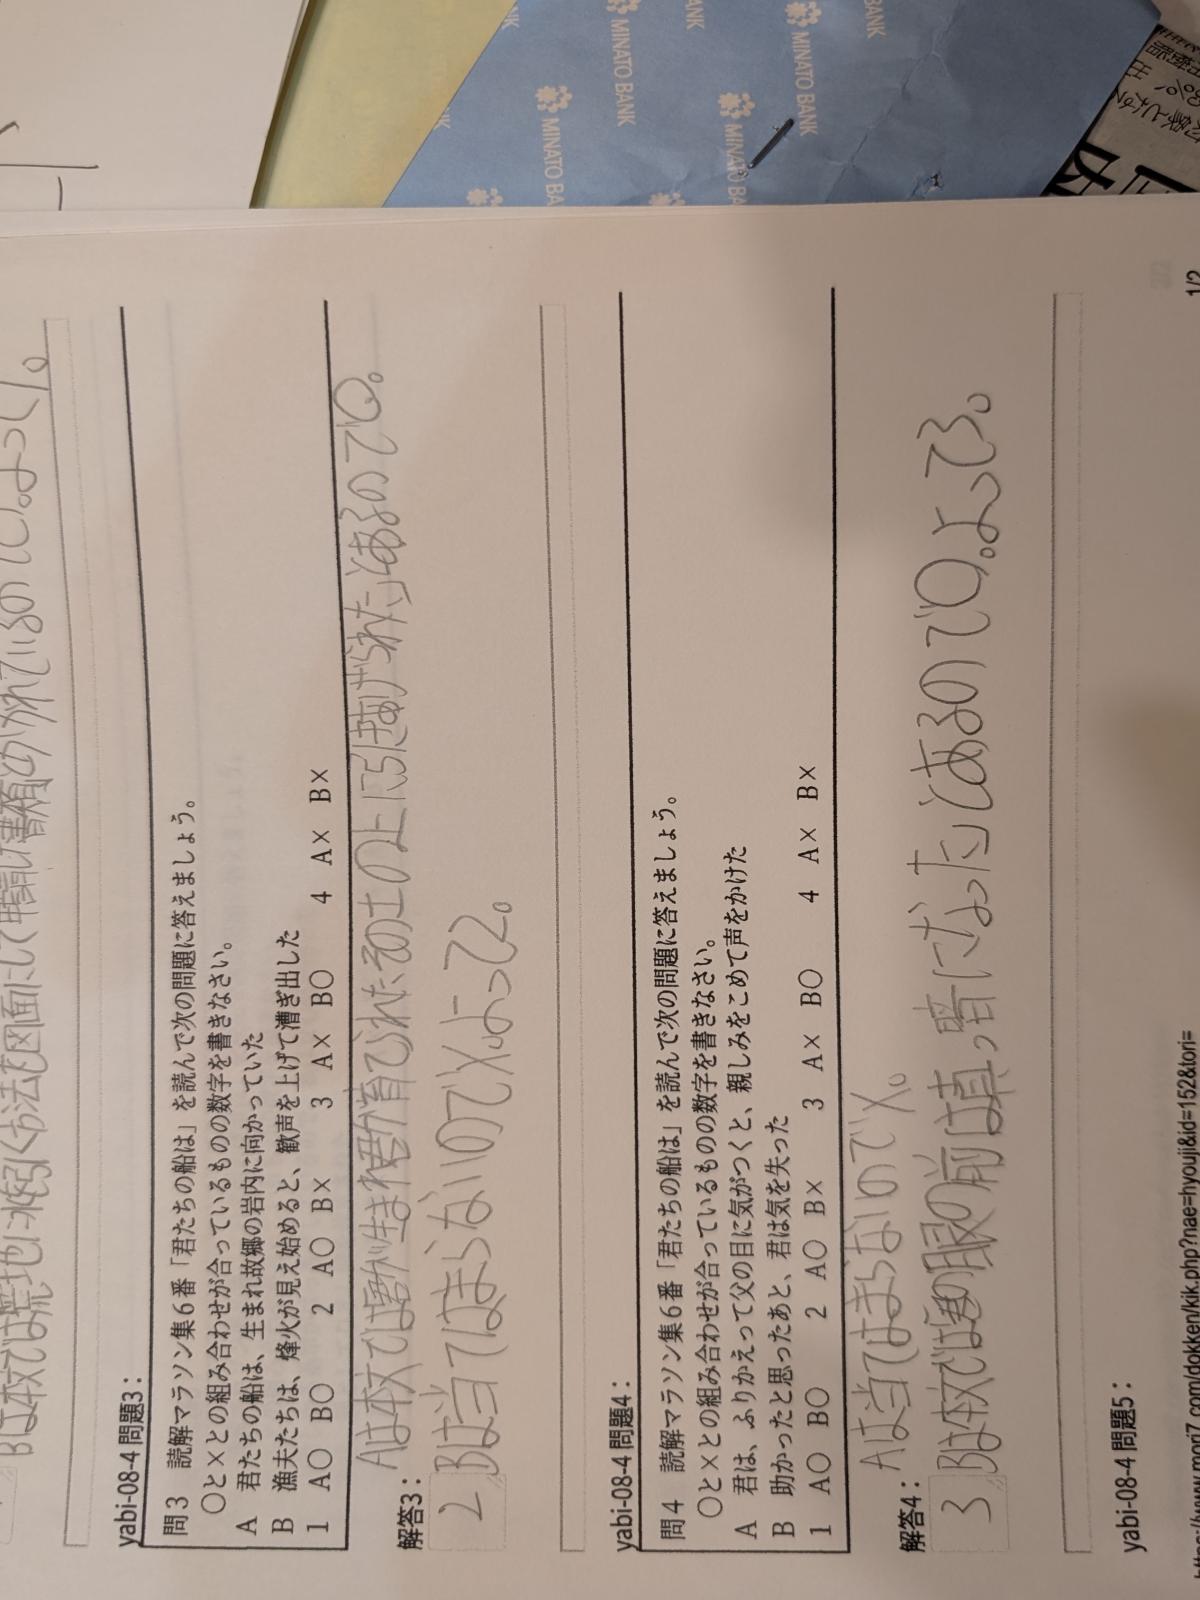 MINATO BANK
MINATO BANK
MINATO BANK
MINATO BA
BANK
Bは本文では荒地に水を引く方法を図面にして
yabi-08-4 問題3：
問3 読解マラソン集6番「君たちの船は」を読んで次の問題に答えましょう。
〇と×との組み合わせが合っているものの数字を書きなさい。
A 君たちの船は、生まれ故郷の岩内に向かっていた
B 漁夫たちは、烽火が見え始めると、歓声を上げて漕ぎ出した
1 A〇 B〇 2 A〇 B× 3 A× B〇 4 A× B×
解答3：
Aは本文では君が生まれ君が育てられたその土の上にらに揚げられた」とあるので〇。
2 Bは当てはまらないので×。よって2。
yabi-08-4 問題4：
問4 読解マラソン集6番「君たちの船は」を読んで次の問題に答えましょう。
〇と×との組み合わせが合っているものの数字を書きなさい。
A 君は、ふりかえって父の目に気がつくと、親しみをこめて声をかけた
B 助かったと思ったあと、君は気を失った
1 A〇 B〇 2 A〇 B× 3 A× B〇 4 A× B×
解答4：
Aは当てはまらないので×。
3 Bは本文では「君の眼の前は真っ暗になった」とあるので〇。よって3。
yabi-08-4 問題5：
https://www.mori7.com/dokken/kik.php?nae=hyouji&id=152&tori=
1/2